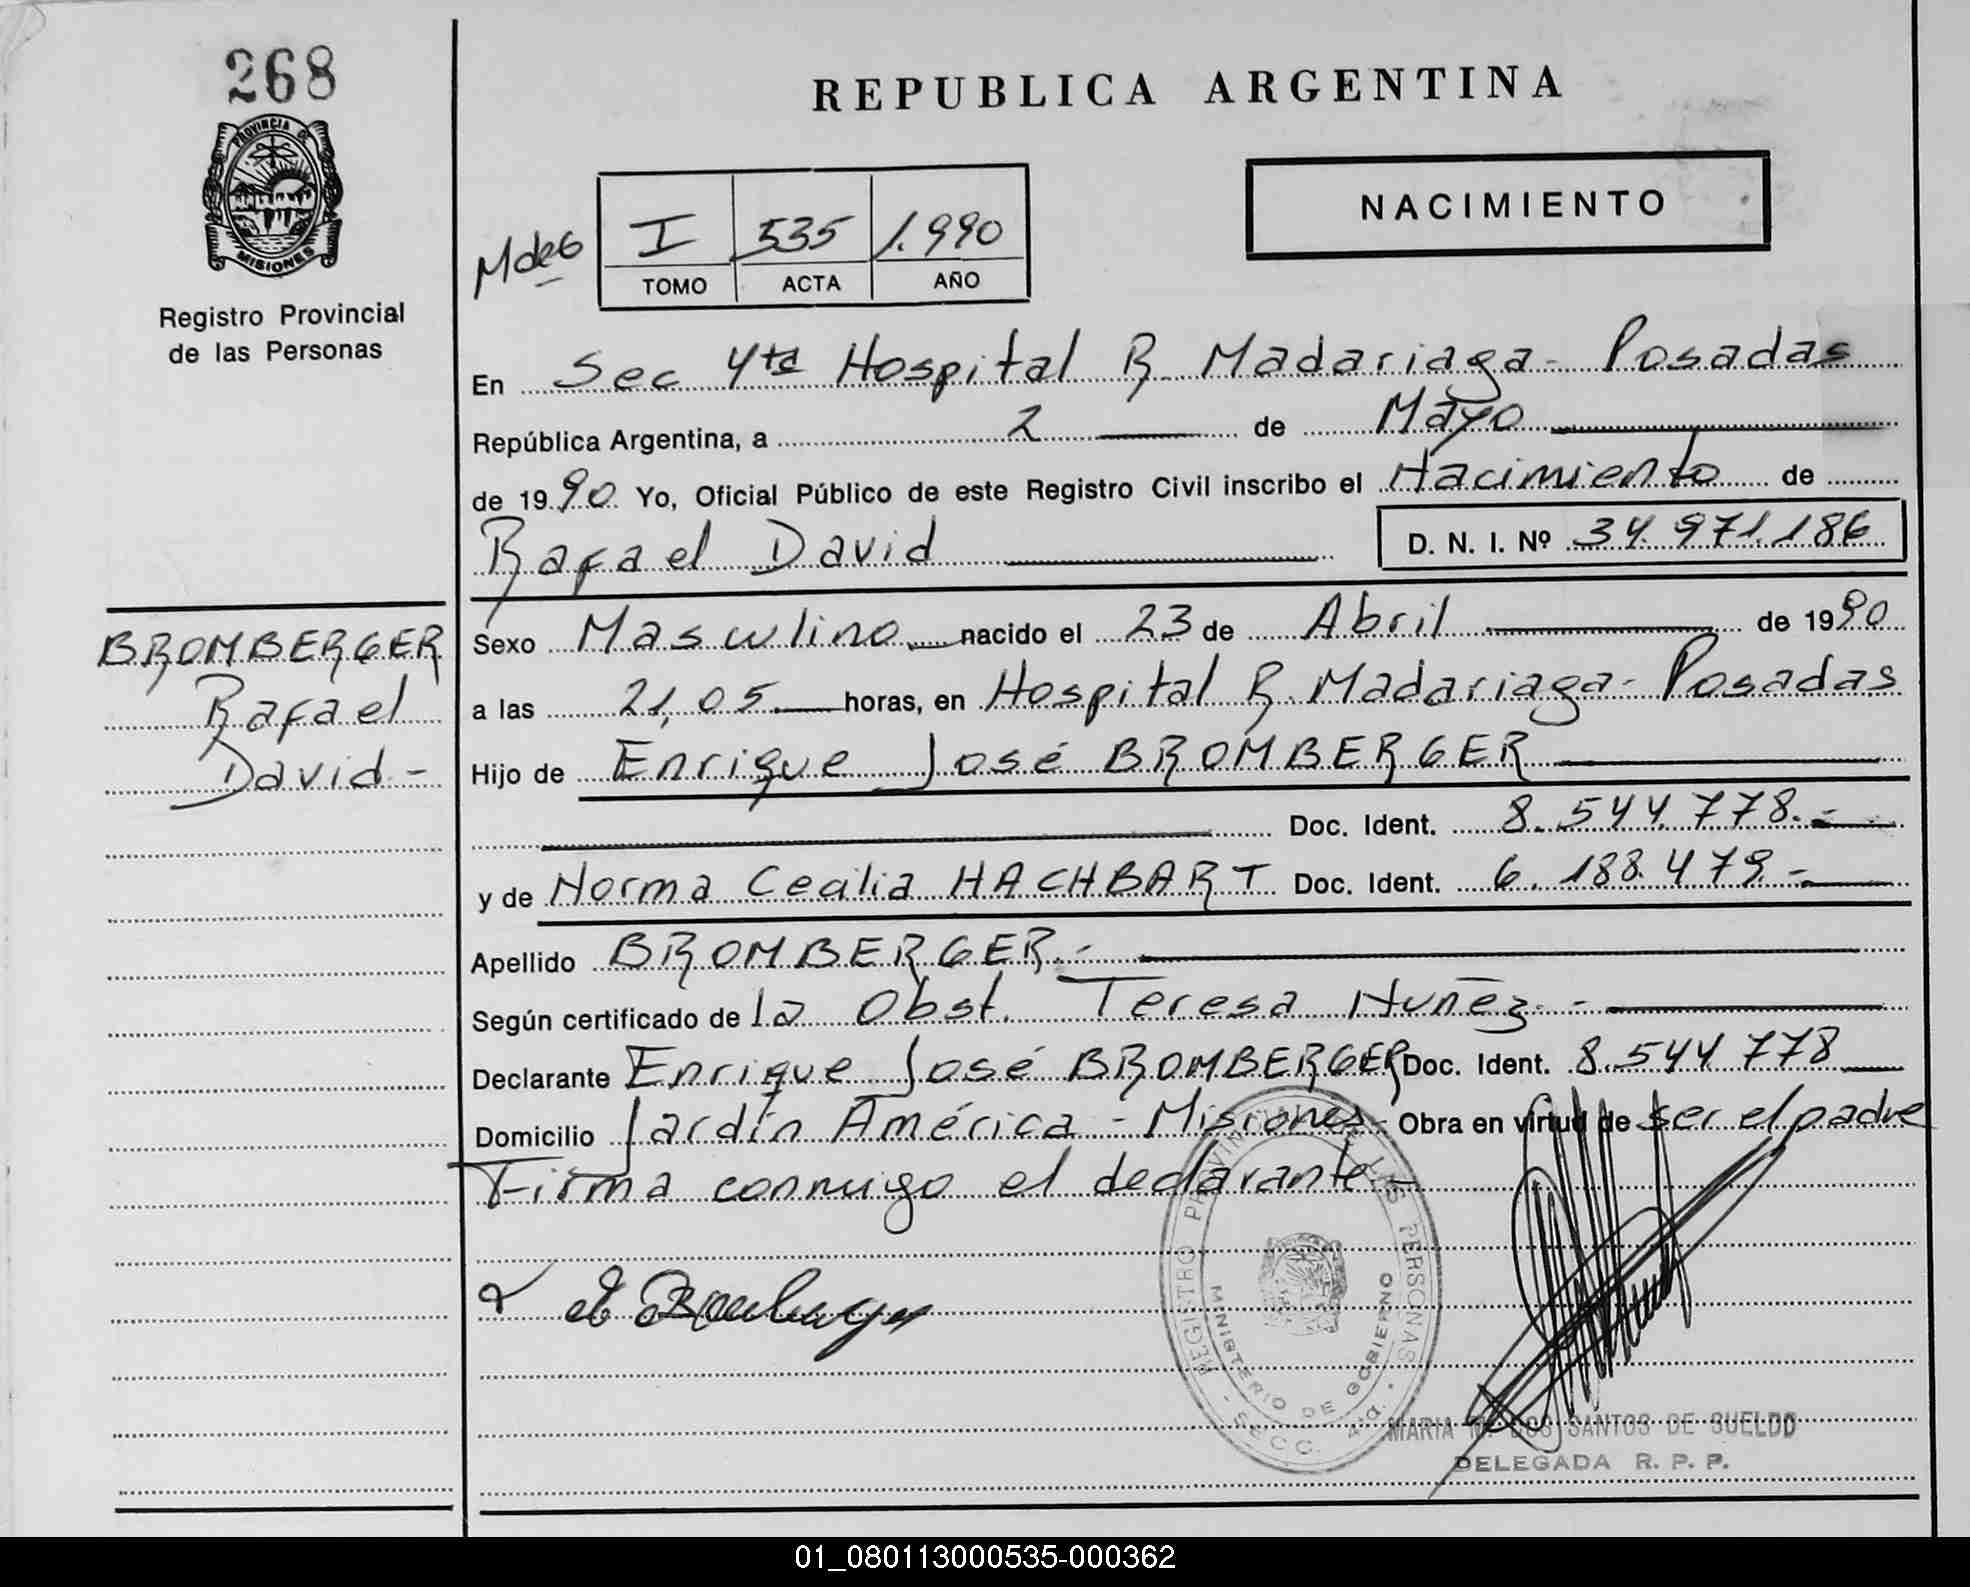 268
REPUBLICA ARGENTINA
PROVINCIA DE
MISIONES
Registro Provincial
de las Personas
I 535 1.990
TOMO ACTA AÑO
NACIMIENTO
En Sec 4ta Hospital R Madariaga - Posadas
República Argentina, a 2 de Mayo
de 1990 Yo, Oficial Público de este Registro Civil inscribo el Nacimiento de
Rafael David D. N. I. Nº 34.971.186
BROMBERGER
Rafael
David.-
Sexo Masculino nacido el 23 de Abril de 1990
a las 21,05 horas, en Hospital R. Madariaga - Posadas
Hijo de Enrique José BROMBERGER
Doc. Ident. 8.544.778.-
y de Norma Cecilia HACHBART Doc. Ident. 6.188.479.-
Apellido BROMBERGER.-
Según certificado de la Obst. Teresa Nuñez.-
Declarante Enrique José BROMBERGER Doc. Ident. 8.544.778
Domicilio Jardín América - Misiones - Obra en virtud de ser el padre
Firma conmigo el declarante-
REGISTRO PROVINCIAL DE LAS PERSONAS
MINISTERIO DE GOBIERNO
SECC. 4ta.
MARIA M. DOS SANTOS DE SUELDO
DELEGADA R. P. P.
01_080113000535-000362